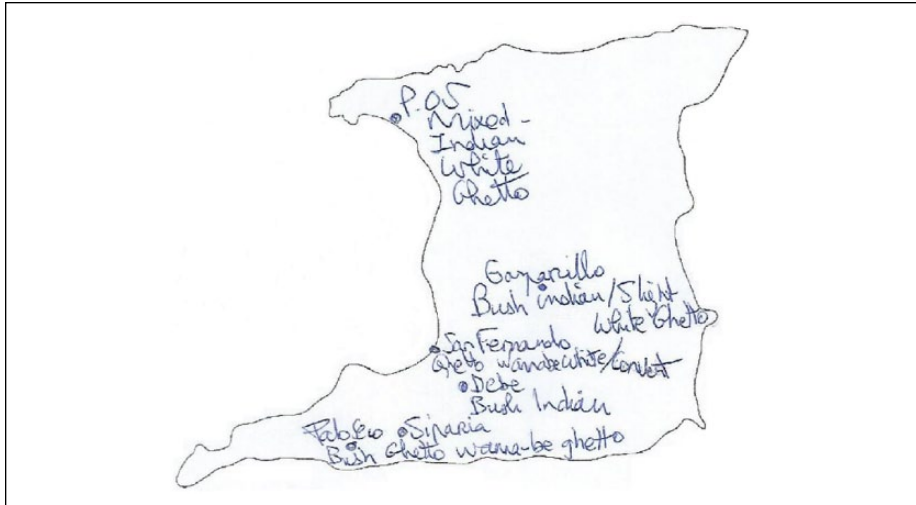 P.O.S
Mixed -
Indian
White
Ghetto
Gasparillo
Bush indian/Slight
White Ghetto
San Fernando
Ghetto wannabe white/Convent
Debe
Bush Indian
Siparia
Bush Ghetto wanna-be ghetto